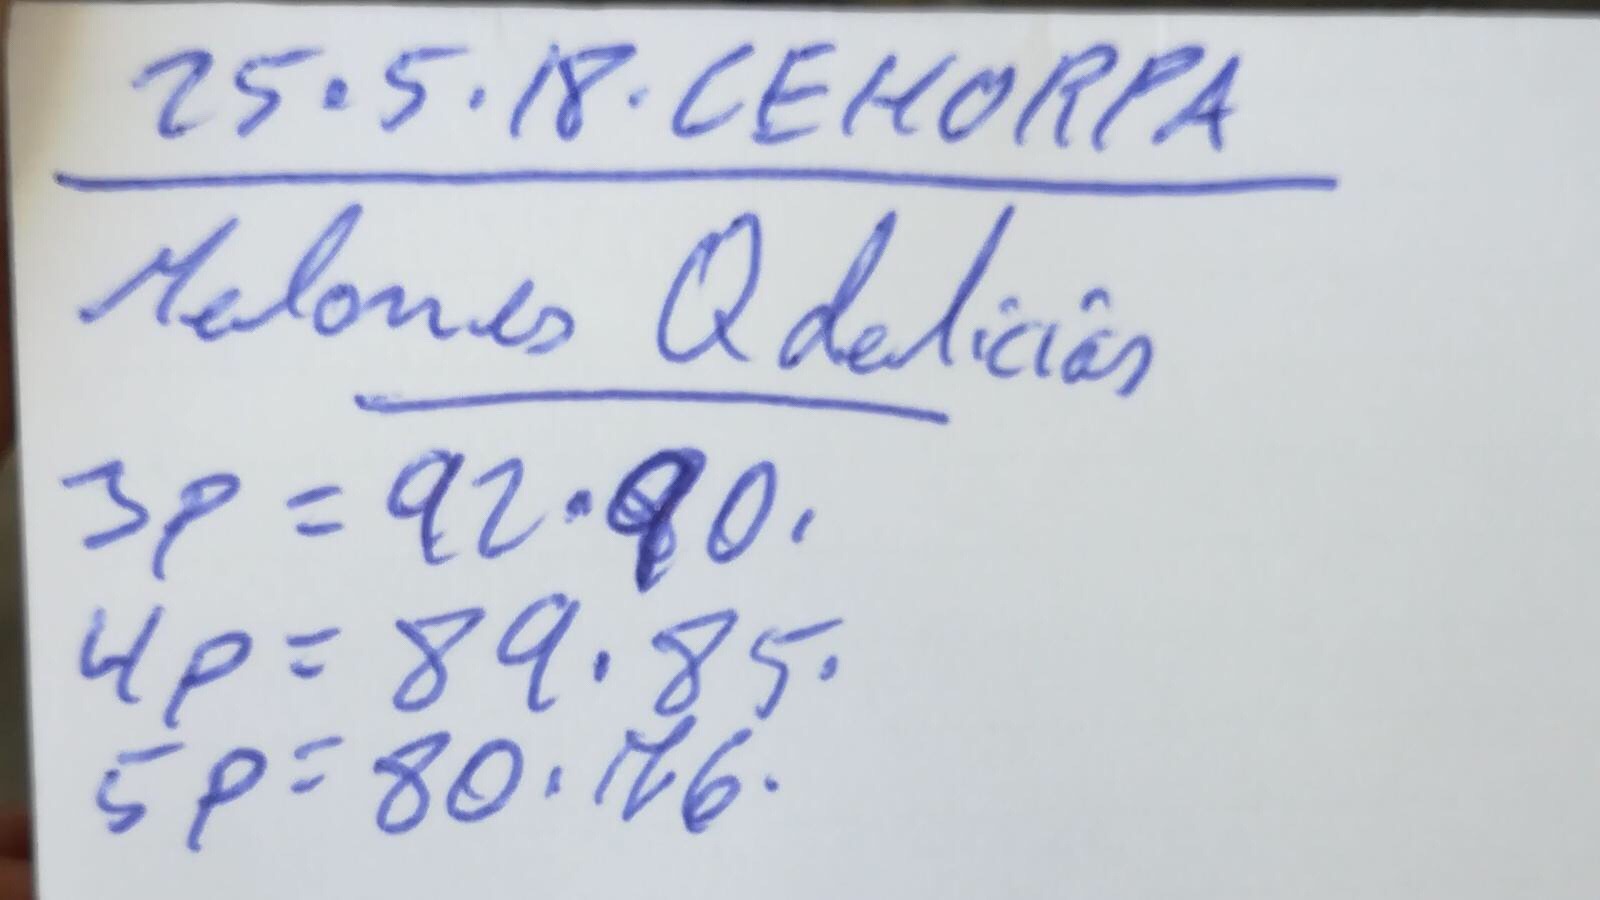 25.5.18.CEHORPA
Melones Qdelicias
3P = 92.90.
4P = 89.85.
5P = 80.76.